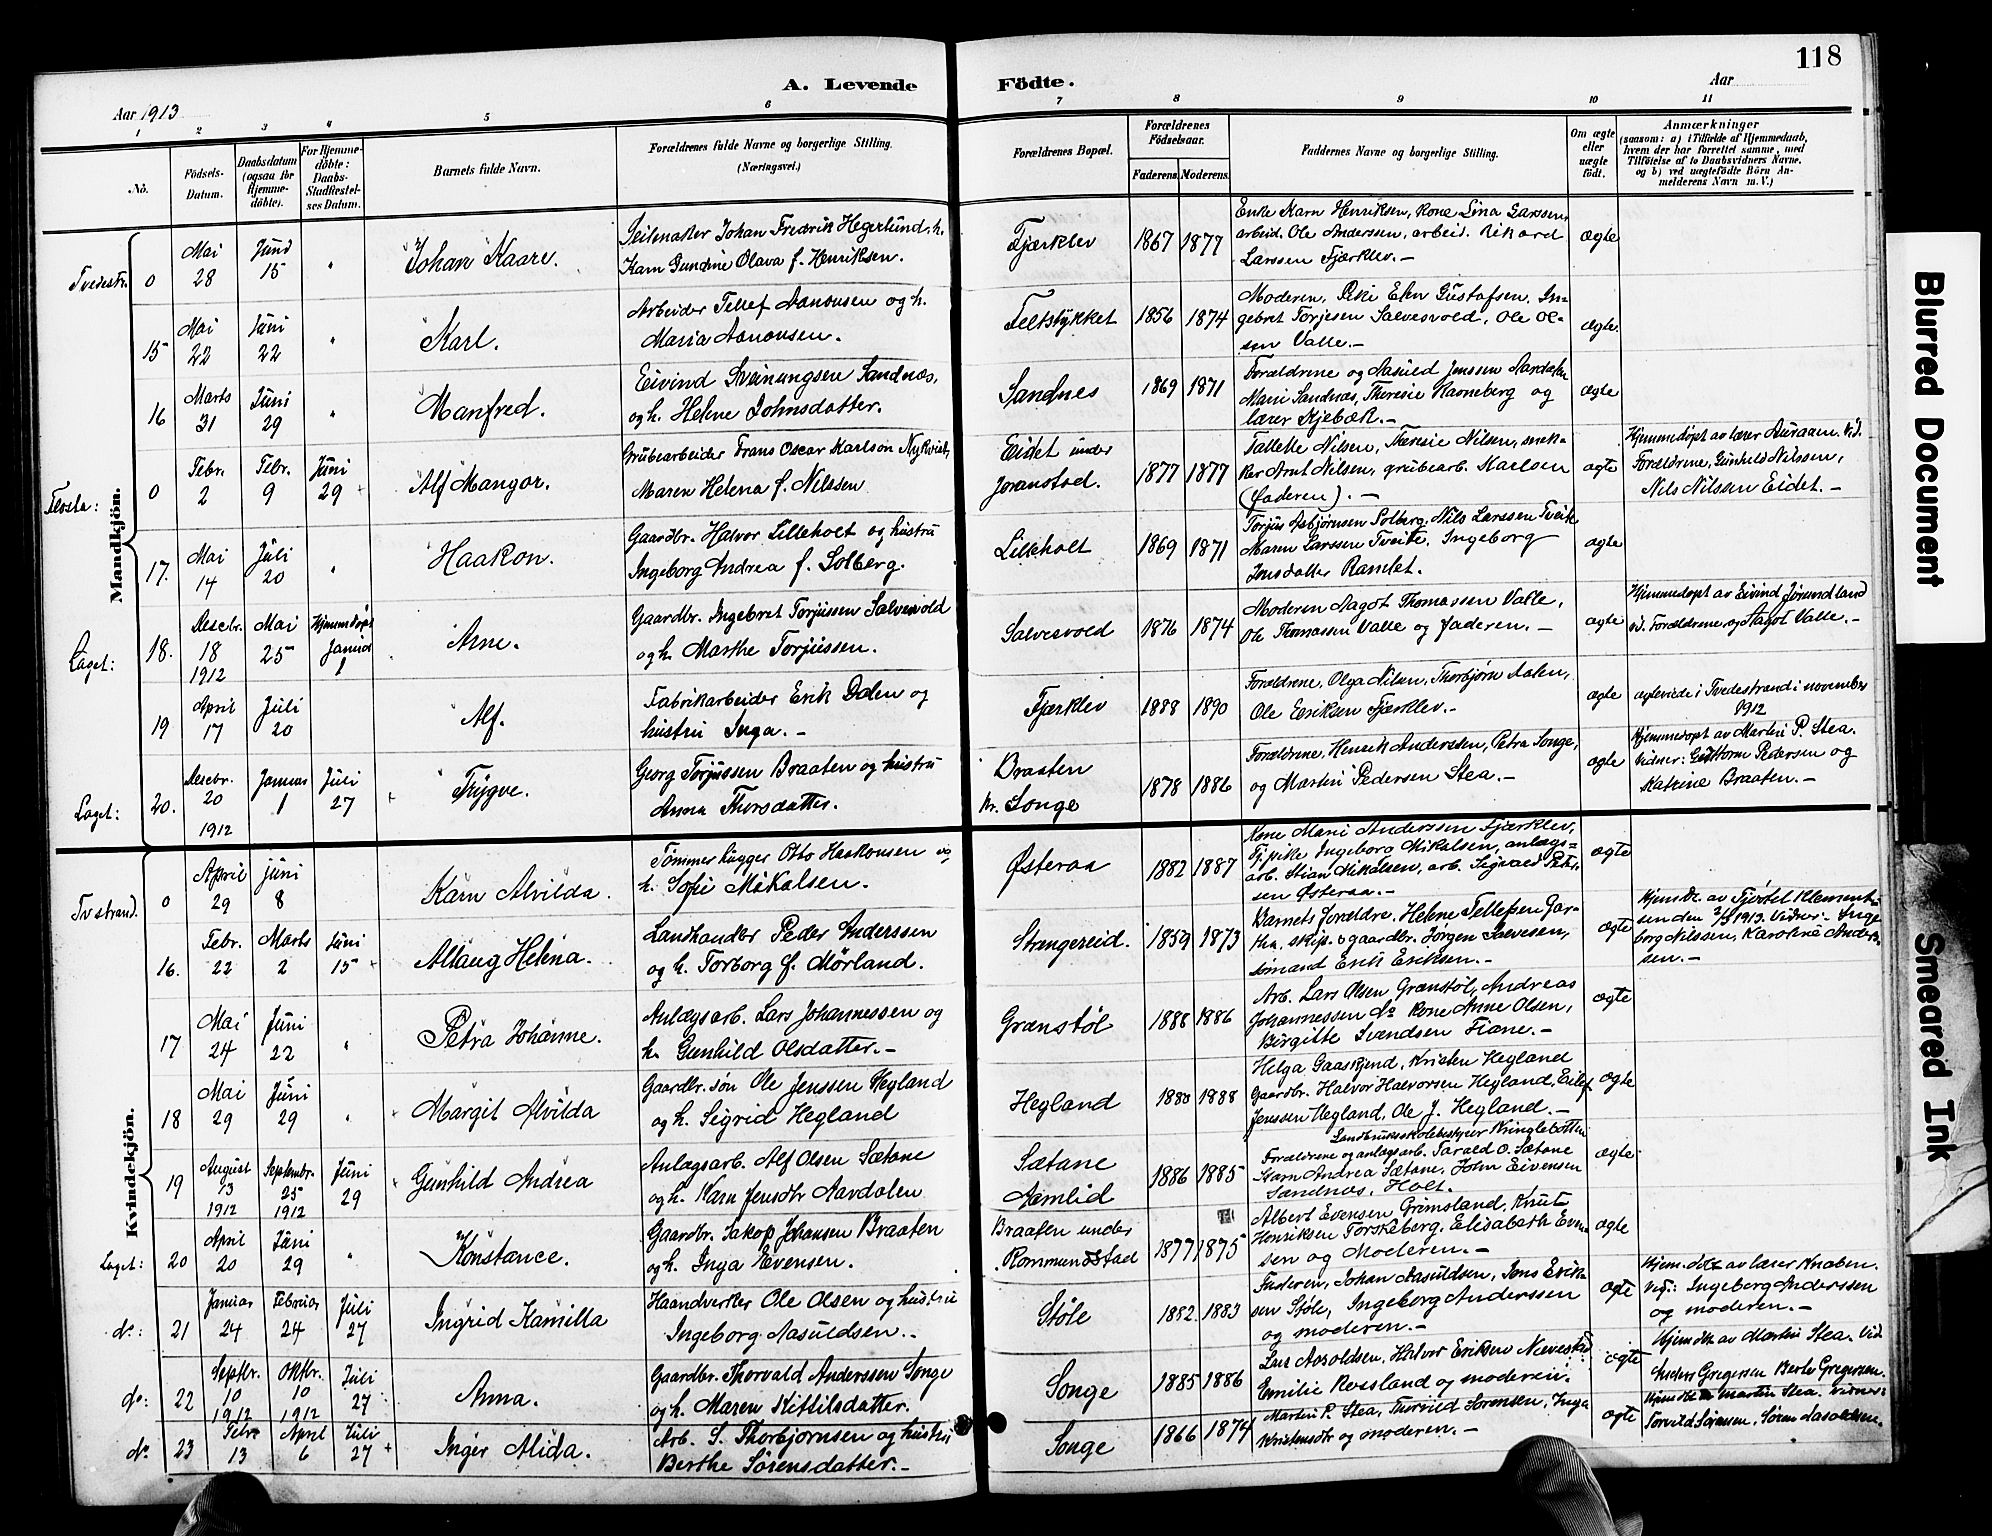 118
A. Levende Födte.
Aar 1913
Aar
1 2 3 4 5 6 7 8 9 10 11
No.
Födsels-
Datum.
Daabsdatum
(ogsaa for
Hjemme-
döbte).
For Hjemme-
döbte:
Daabs-
Stadfæstel-
ses Datum.
Barnets fulde Navn.
Forældrenes fulde Navne og borgerlige Stilling.
(Næringsvei.)
Forældrenes Bopæl.
Forældrenes
Födselsaar.
Faderens. Moderens.
Faddernes Navne og borgerlige Stilling.
Om ægte
eller
uægte
födt.
Anmærkninger
(saasom: a) i Tilfælde af Hjemmedaab,
hvem der har forrettet samme, med
Tilföielse af to Daabsvidners Navne,
og b) ved uægtefödte Börn An-
melderens Navn m. V.)
Mandkjön.
Tvedestr. 0 Mai 28 Juni 15 " Johan Kaare.
Seilmaker Johan Fredrik Hegerlund, h.
Karn Gundine Olava f. Henriksen.
Fjærklev 1867 1877
Enke Karn Henriksen, Kone Lina Larssen,
arbeid. Ole Andersen, arbeid. Rikard
Larssen Fjærklev.-
ægte
15 Mai 22 Juni 22 " Karl.
Arbeider Tellef Aanonsen og h.
Maria Aanonsen.
Feltstykket 1856 1874
Moderen, Pike Elen Gustafsen, In-
gebret Torjesen Salvesvold, Ole Ol-
sen Valle.-
ægte
16 Marts 31 Juni 29 " Manfred.
Eivind Sveinungsen Sandnes,
og h. Helene Johnsdatter.
Sandnes 1869 1871
Forældrene og Aasuld Jenssen
Mari Sandnæs, Theresie Ravneberg og
lærer Kjebæk.-
ægte
0 Febr. 2 Febr. 9 Juni 29 Alf Mangor.
Grubearbeider Frans Oscar Karlson Nykvist,
Maren Helena f. Nilssen
Eidet under
Joranstad. 1877 1877
Tallette Nilsen, Theresie Nilsen,
Arnt Nilsen, grubearb. Karlsen
(faderen).-
ægte
Hjemmedøpt av lærer Auraaen. Vid.
Forældrene, Gunhild Nilssen,
Nils Nilssen Eidet.-
17. Mai 14 Juli 20 " Haakon.
Gaardbr. Halvor Lilleholt og hustru
Ingeborg Andrea f. Solberg.
Lilleholt 1869 1871
Torjus Asbjørnsen Solberg, Nils Larssen Tveite
Maren Larssen Tveite, Ingeborg
Jonsdatter Ramlet.
ægte
Laget: 18. Desebr. 18 1912 Mai 25 Hjemmedøpt Januar 1 Arne.
Gaardbr. Ingebret Torjussen Salvesvold
og h. Marthe Torjussen.
Salvesvold 1876 1874
Moderen Aagot Thomassen Valle,
Ole Thomassen Valle og faderen.-
ægte
Hjemmedøpt av Eivind Jorundland
vid. Forældrene og Aagot Valle.-
19 April 17 Juli 20 Alf.
Fabrikarbeider Erik Dalen og
hustru Inga.-
Fjærklev 1888 1890
Forældrene, Olga Nilsen, Thorbjørn Aalen,
Ole Eriksen Fjærklev.-
ægte
ægteviede i Tvedestrand i november
1912
Laget: 20. Desebr. 20 1912 Januar 1 Juli 27 Trygve.
Georg Torjussen Braaten og hustru
Anna Thorsdatter.
Braaten
kr. Songe 1878 1886
Forældrene, Henrik Anderssen, Petra Songe,
og Martin Pedersen Stea.-
ægte
Hjemmedøpt av Martin P. Stea.
Vidner: Guttorm Pedersen og
Katrine Braaten.-
Kvindekjön.
Tvstrand. 0 April 29 juni 8 Karn Alvilda.
Tømmerhugger Otto Haakonsen og
h. Sofie Mikalsen.
Østeraa 1882 1887
Kone Mari Anderssen Fjærklev,
Tj.pike Ingeborg Mikalsen, anlægs-
arb. Stian Mikalsen, arb. Sigvald Peter-
sen Østeraa.-
ægte
16. Febr. 22 Marts 2 Juni 15 Allaug Helena.
Landhandlr Peder Anderssen
og h. Torborg f. Mørland.
Strengereid. 1859 1873
Barnets forældre, Helene Tellefsen Gar-
tha, skip. o gaardbr. Jørgen Salvesen,
sømand Erik Eriksen.-
ægte
Hjemdt. av Tjøstel Klement-
sen den 2/3 1913. Vidner: Inge
borg Nilssen, Karoline Ander-
sen.-
17 Mai 24 Juni 22 " Petra Johanne.
Anlægsarb. Lars Johannessen og
h. Gunhild Olsdatter.-
Grenstøl 1888 1886
Arb. Lars Olsen Grenstøl, Andreas
Johannessen do Kone Anne Olsen,
Birgitte Svendsen Fiane.-
ægte
18 Mai 29 Juni 29 " Margit Alvilda
Gaardbr. søn Ole Jenssen Hegland
og h. Sigrid Hegland
Hegland 1880 1888
Helga Gaaskjend, Kristen Hegland
Gaardbr. Halvor Halvorsen Hegland, Eilef
Jenssen Hegland, Ole J. Hegland.-
Landbruksskolebestyrer Kringlebotten
ægte
19 August 13 1912 Septembr. 25 1912 Juni 29 Gunhild Andrea
Anlægsarb. Alf Olsen Sætane
og h. Karn Jensdtr Aardalen
Sætane
Aamlid 1886 1885
Forældrene og anlagsarb. Tarald O. Sætane
Karn Andrea Sætane, John Eivensen
Sandnæs, Holt.
ægte
Laget: 20 April 20 Juni 29 " Konstance.
Gaardbr. Jakop Johansen Braaten
og h. Inga Evensen.
Braaten under
Rommundstad 1877 1875
Albert Evensen Grimsland, Knut
Henriksen Torskeberg, Elisabeth Even-
sen og Moderen.-
ægte
do: 21 Januar 24 Februar 24 Juli 27 Ingrid Kamilla
Haandverker Ole Olsen og hustru
Ingeborg Aasuldsen.-
Støle 1882 1883
Faderen, Johan Aasuldsen, Jens Erik-
sen Støle, Ingeborg Anderssen
og moderen.-
ægte
Hjem.døbt av lærer Knaben.
Vid: Ingeborg Anderssen
og moderen.-
do: 22 Septbr. 10 1912 Oktbr. 10 1912 Juli 27 Anna.
Gaardbr. Thorvald Anderssen Songe
og h. Maren Kittilsdatter.
Songe 1885 1886
Lars Aasoldsen, Halvor Eriksen Nævestad
Emilie Rossland og moderen.
ægte
Hjemdt av Martin Stea. Vid
Anders Gregersen Berte Gregersen.
do 23 Febr 13 April 6 Juli 27 Inger Alida.
Arb. S. Thorbjørnsen og hustru
Berthe Sørensdatter.-
Songe 1866 1874
Martin P. Stea, Torvild Sørensen, Inga
Kristensdtr og moderen.-
ægte
Hjemdt av Martin Stea. Vidner:
Torvild Sørensen, Søren Aasoldsen.
Blurred Document
Smeared Ink